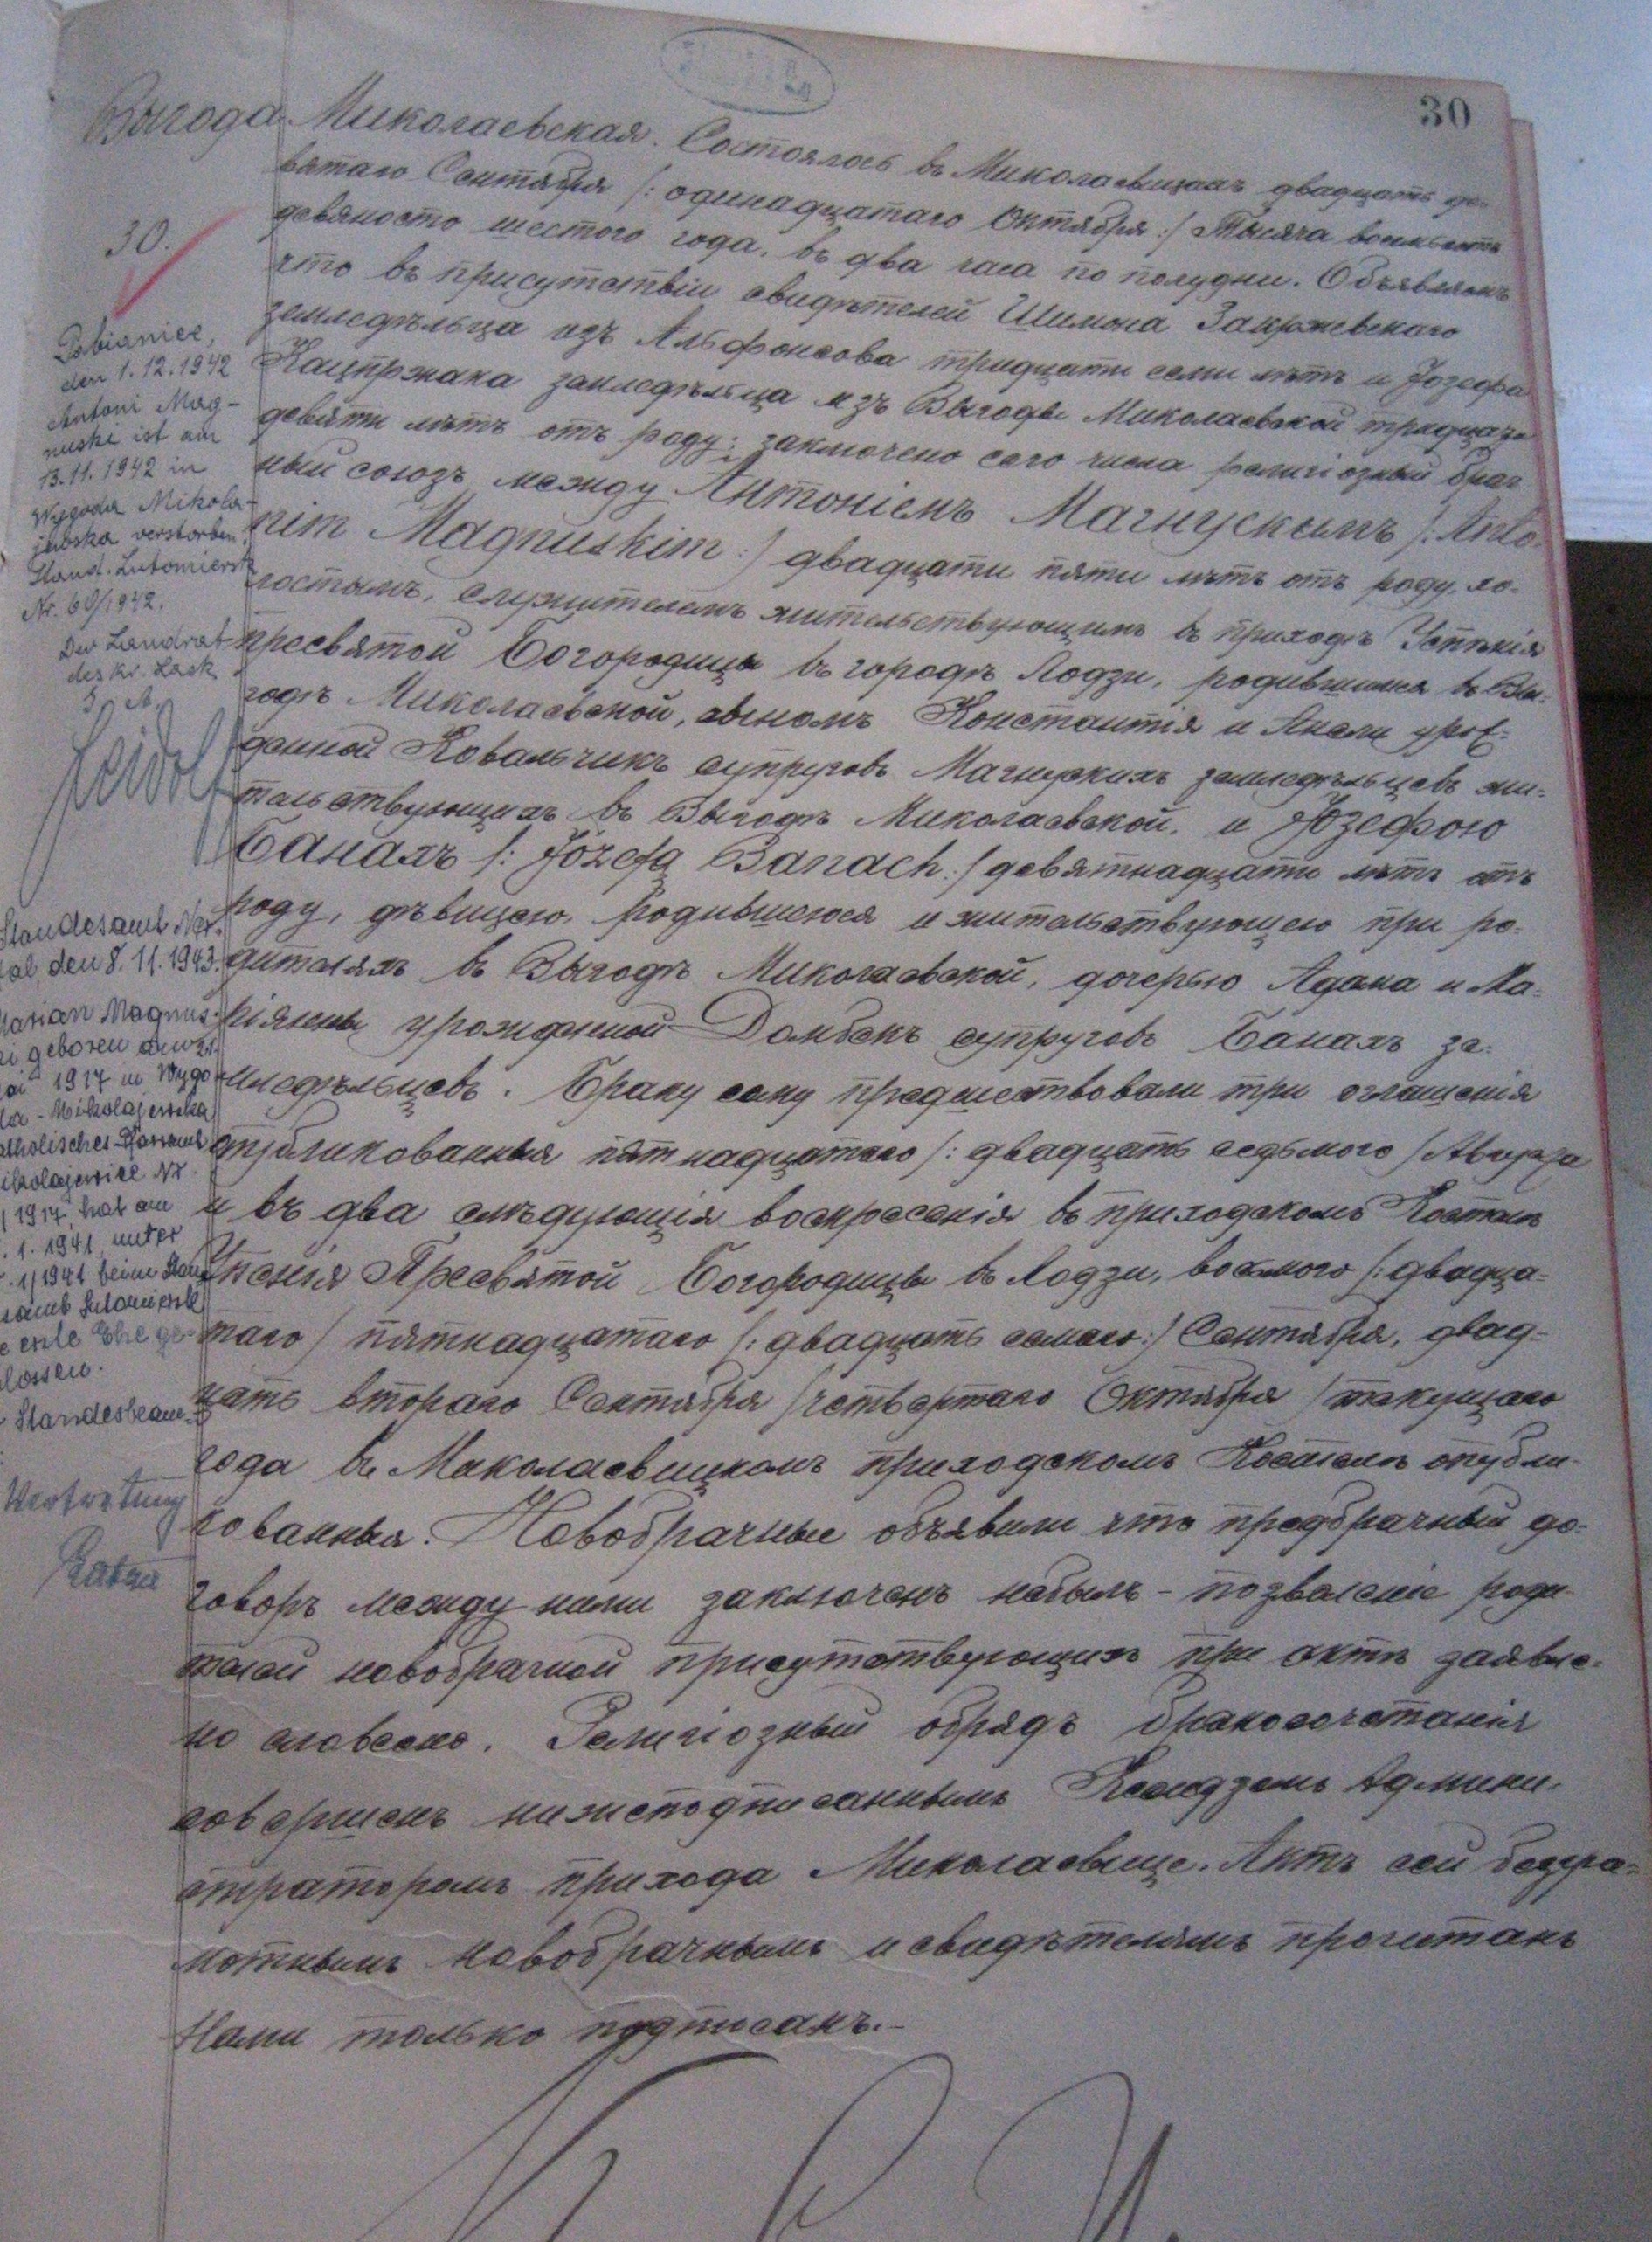 30
Выгода Миколаевская. Состоялось въ Миколаевицахъ двадцать де-
вятаго Сентября /: одинадцатаго Октября :/ Тысяча восемьсотъ
девяносто шестого года, въ два часа по полудни. Объявляемъ
что въ присутствіи свидѣтелей Шимона Закржевскаго
земледѣльца изъ Альфонсова тридцати семи лѣтъ и Іозефа
Кацпржака земледѣльца изъ Выгоды Миколаевской тридцати
девяти лѣтъ отъ роду; заключено сего числа религіозный брач
ный союзъ между Антоніемъ Магнускимъ /: Anto-
nim Magnuskim :/ двадцати пяти лѣтъ отъ роду, хо-
лостымъ, служителемъ жительствующимъ въ приходѣ Успѣнія
пресвятой Богородицы въ городѣ Лодзи, родившимся въ Вы-
годѣ Миколаевской, сыномъ Константія и Анели урож-
денной Ковальчикъ супруговъ Магнускихъ земледѣльцевъ жи-
тельствующихъ въ Выгодѣ Миколаевской, и Іозефою
Банахъ /: Józefą Banach :/ девятнадцати лѣтъ отъ
роду, дѣвицею, родившеюся и жительствующею при ро-
дителяхъ въ Выгодѣ Миколаевской, дочерью Адама и Ма-
ріянны урожденной Домбекъ супруговъ Банахъ зе-
мледѣльцевъ. Браку сему предшествовали три оглашенія
опубликованныя пятнадцатаго /: двадцать седьмого / Августа
и въ два слѣдующія воскресенія въ приходскомъ Костелѣ
Успенія Пресвятой Богородицы въ Лодзи, восьмого /: двадца-
таго / пятнадцатаго /: двадцать семаго :/ Сентября, двад-
цать второго Сентября / четвертаго Октября / текущаго
года въ Миколаевицкомъ приходскомъ Костелѣ опубли-
кованныя. Новобрачные объявили что предбрачный до-
говоръ между ними заключенъ небылъ - позволеніе роди-
телей новобрачной присутствующихъ при актѣ заявле-
но словесно. Религіозный обрядъ бракосочетанія
совершенъ нижеподписаннымъ Ксендземъ Админи-
страторомъ прихода Миколаевице. Актъ сей безгра-
мотнымъ новобрачнымъ и свидѣтелямъ прочитанъ
Нами только подписанъ.-
30.
Pabianice,
den 1.12.1942
Antoni Mag-
nuski ist am
13.11.1942 in
Wygoda Mikola-
jewska verstorben
Stand. Lutomiersk
Nr. 60/1942.
Der Landrat
des Kr. Lask
I. A.
Standesamt
den 8.11.1943.
Marian Magnus-
ki geboren am 21.
1917 in Wygo-
da - Mikolajewska
katholisches Pfarramt
Mikolajewice Nr.
1917, hat am
. 1. 1941 unter
. 1/1941 beim Stan
desamt Lutomiersk
erste Ehe ge-
lossen.
Standesbeam
Vertretung